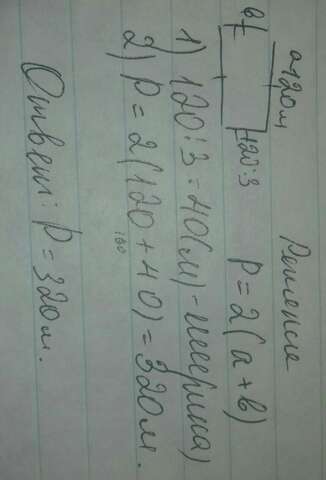 Решение
a 120 м
в
120:3
P = 2(a + в)
1) 120:3 = 40(м) - ширина)
2) P = 2(120 + 40) = 320 м.
160
Ответ: P = 320 м.